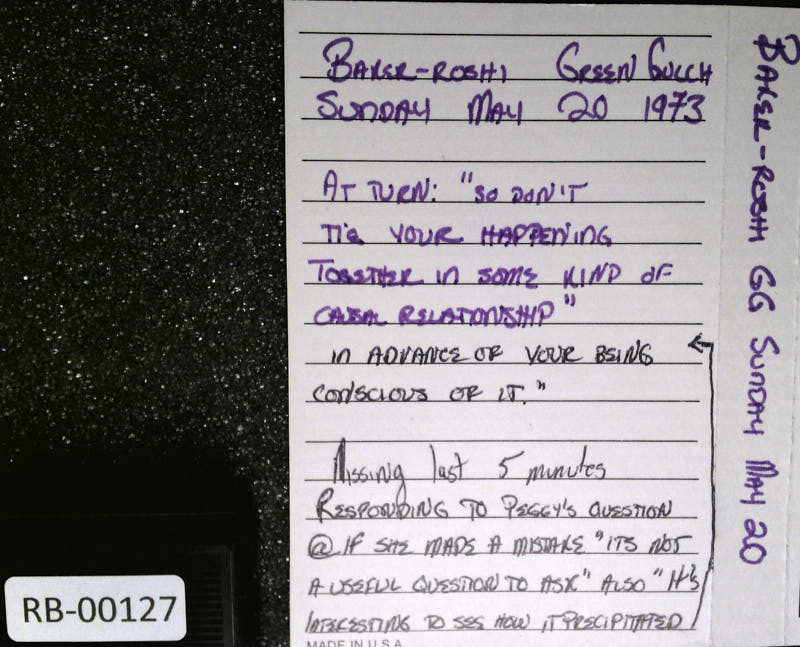 BAKER-ROSHI GREEN GULCH
SUNDAY MAY 20 1973
AT TURN: "SO DON'T
TIE YOUR HAPPENING
TOGETHER IN SOME KIND OF
CAUSAL RELATIONSHIP"
IN ADVANCE OF YOUR BEING
CONSCIOUS OF IT."
Missing last 5 minutes
RESPONDING TO PEGGY'S QUESTION
@ IF SHE MADE A MISTAKE "ITS NOT
A USEFUL QUESTION TO ASK" ALSO "It's
INTERESTING TO SEE HOW IT PRECIPITATED
MADE IN U.S.A.
BAKER-ROSHI GG SUNDAY MAY 20
RB-00127